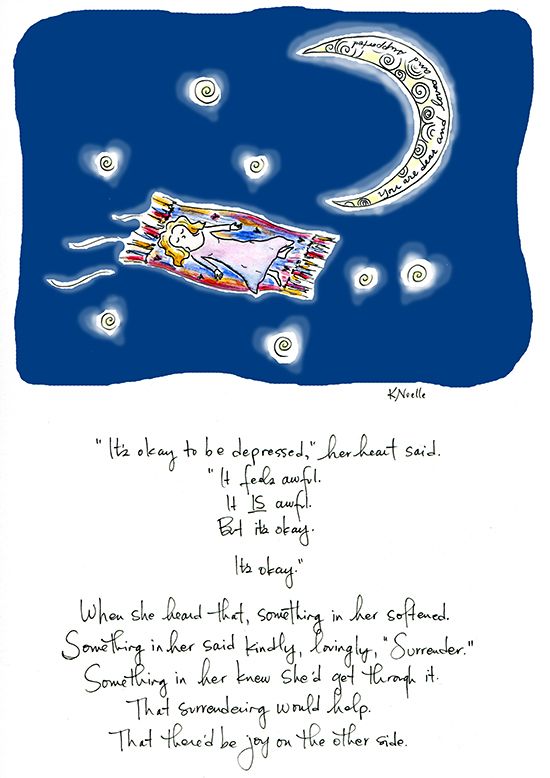 You are dear and loved and supported
K.Noelle
"It's okay to be depressed," her heart said.
"It feels awful.
It IS awful.
But it's okay.
It's okay."
When she heard that, something in her softened.
Something in her said kindly, lovingly, "Surrender."
Something in her knew she'd get through it.
That surrendering would help.
That there'd be joy on the other side.